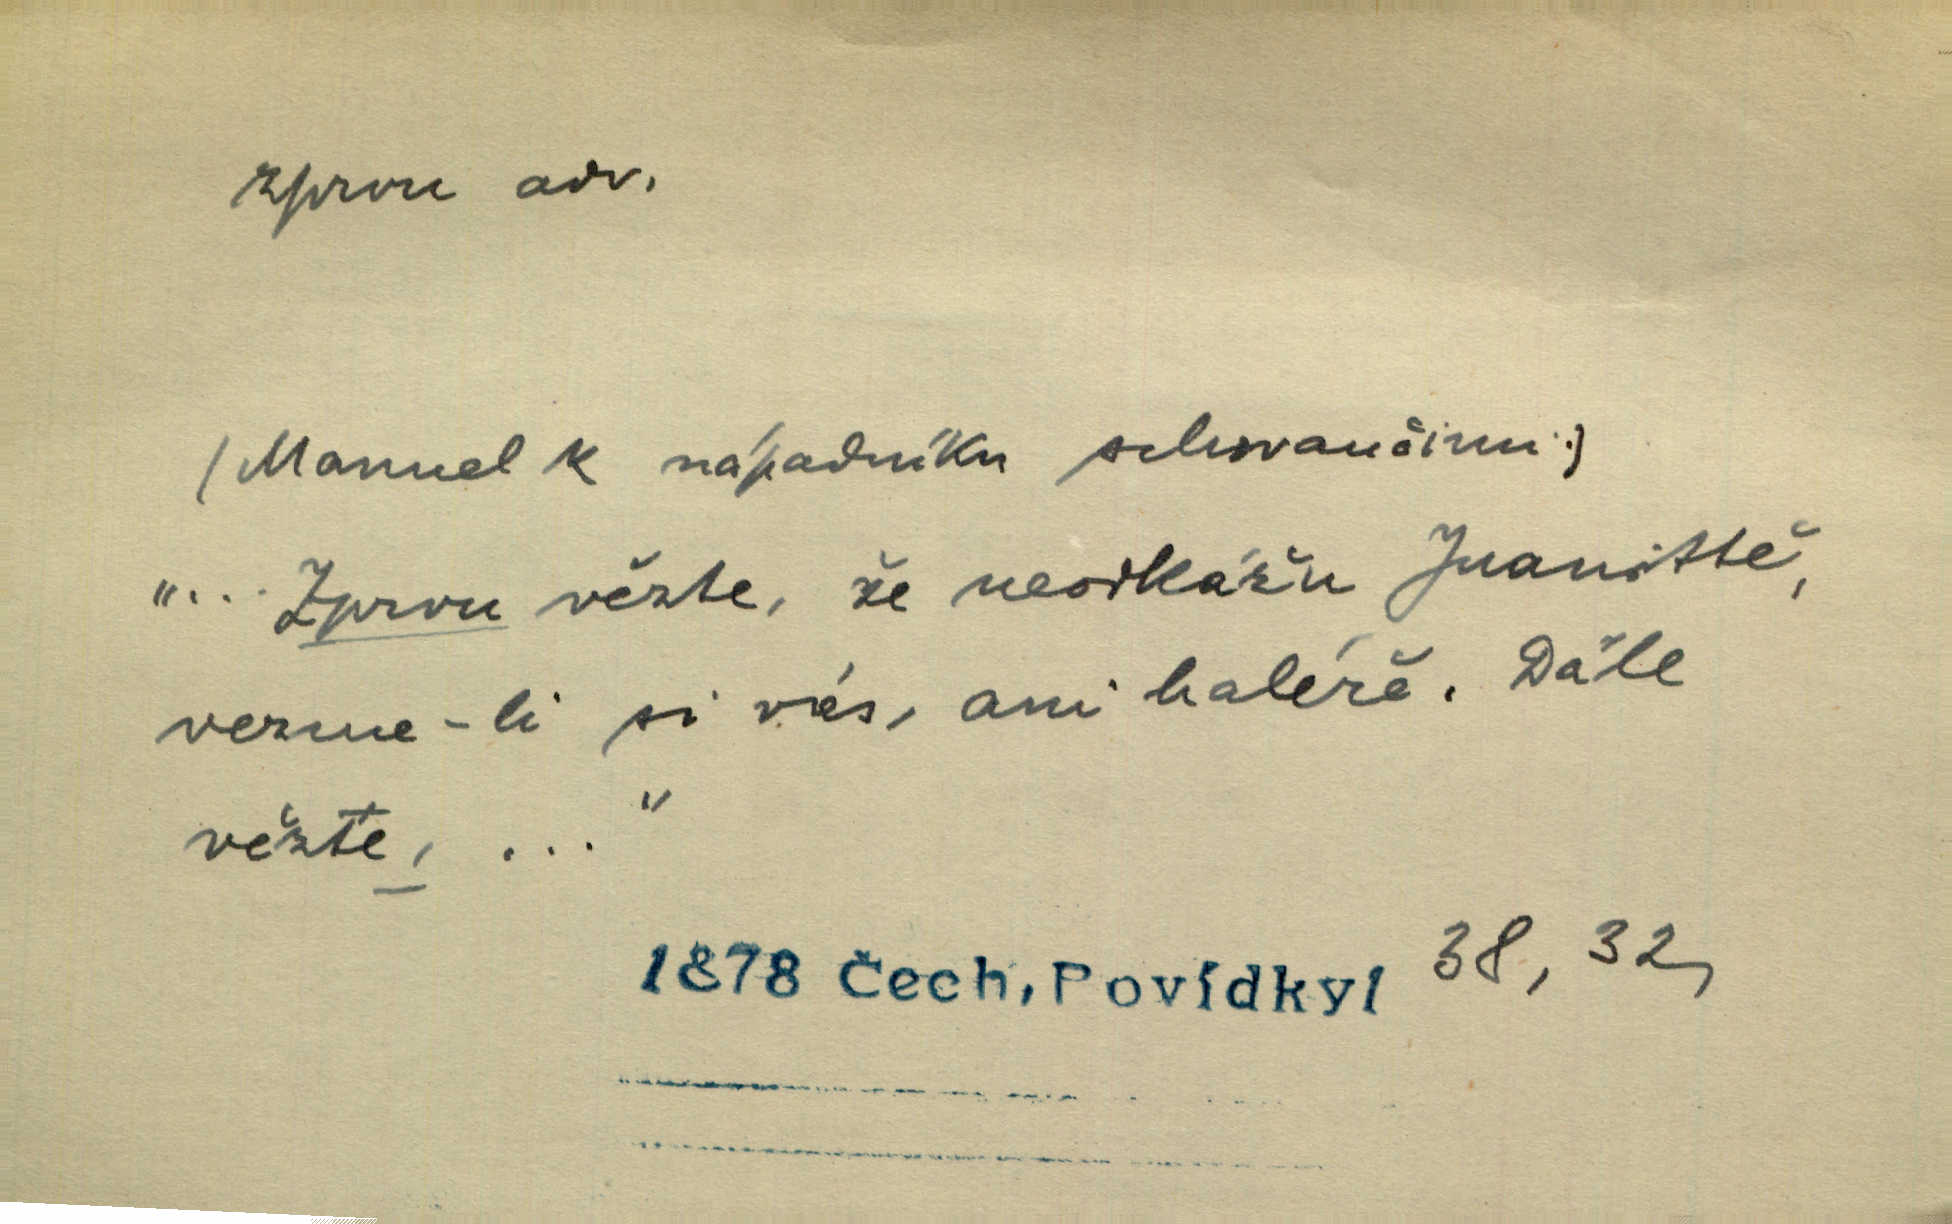 zprvu adv.
(Manuel k nápadníku schovančinu:)
"... Zprvu vězte, že neodkážu Juanittě,
vezme-li si vás, ani haléře. Dále
vězte, ... "
1878 Čech, Povídky1 38, 32,